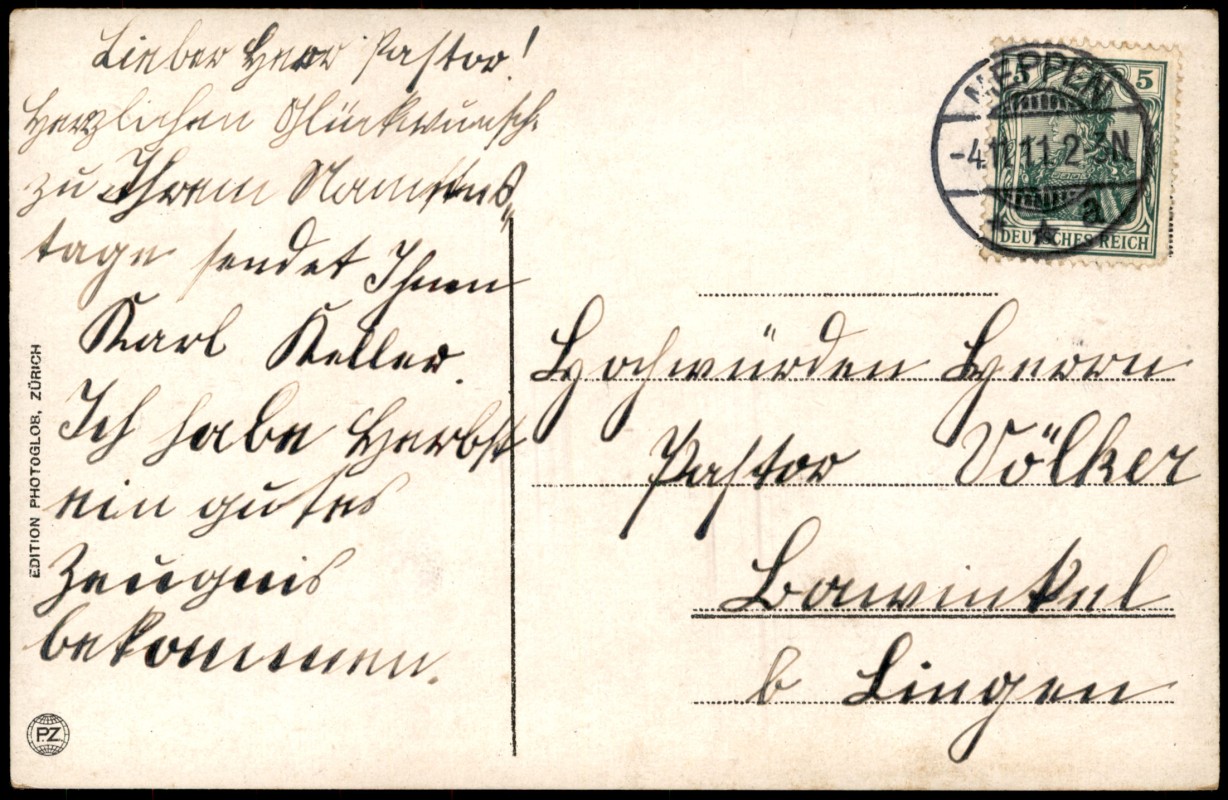 Lieber Herr Pastor!
Herzlichen Glückwunsch
zu Ihrem Namens
tage sendet Ihnen
Karl Keller.
Ich habe Herbst
ein gutes
Zeugnis
bekommen.
EDITION PHOTOGLOB, ZÜRICH
P.Z.
MEPPEN
-4.11.11.2-3N.
* a
5 5
DEUTSCHES REICH
Hochwürden Herrn
Pastor Völker
Bawinkel
b Lingen